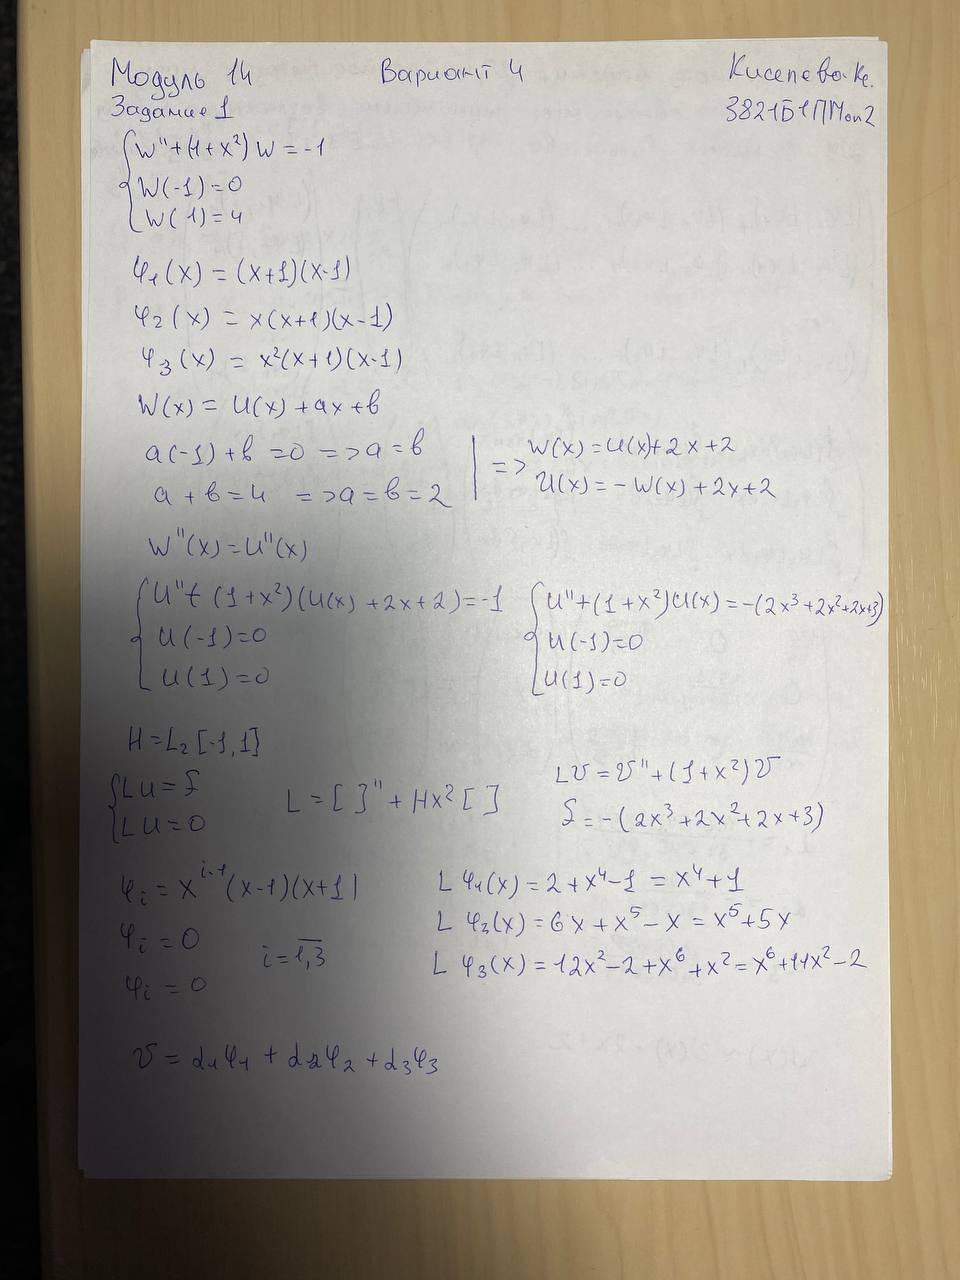 Модуль 14 Вариант 4 Киселева Кс.
Задание 1 3821Б1ПМоп2
W'' + (1 + x²) W = -1
W(-1) = 0
W(1) = 4
φ₁(x) = (x+1)(x-1)
φ₂(x) = x(x+1)(x-1)
φ₃(x) = x²(x+1)(x-1)
W(x) = U(x) + ax + b
a(-1) + b = 0 => a = b
a + b = 4 => a = b = 2
=> W(x) = U(x) + 2x + 2
U(x) = -W(x) + 2x + 2
W''(x) = U''(x)
U'' + (1 + x²)(U(x) + 2x + 2) = -1
U(-1) = 0
U(1) = 0
U'' + (1 + x²)U(x) = -(2x³ + 2x² + 2x + 3)
U(-1) = 0
U(1) = 0
H = L₂ [-1, 1]
LU = f
LU = 0
L = [ ]'' + Hx² [ ]
Lv = v'' + (1 + x²) v
f = -(2x³ + 2x² + 2x + 3)
φᵢ = xⁱ⁻¹(x-1)(x+1)
φᵢ = 0
φᵢ = 0
i = 1,3
L φ₁(x) = 2 + x⁴ - 1 = x⁴ + 1
L φ₂(x) = 6x + x⁵ - x = x⁵ + 5x
L φ₃(x) = 12x² - 2 + x⁶ + x² = x⁶ + 11x² - 2
v = α₁φ₁ + α₂φ₂ + α₃φ₃